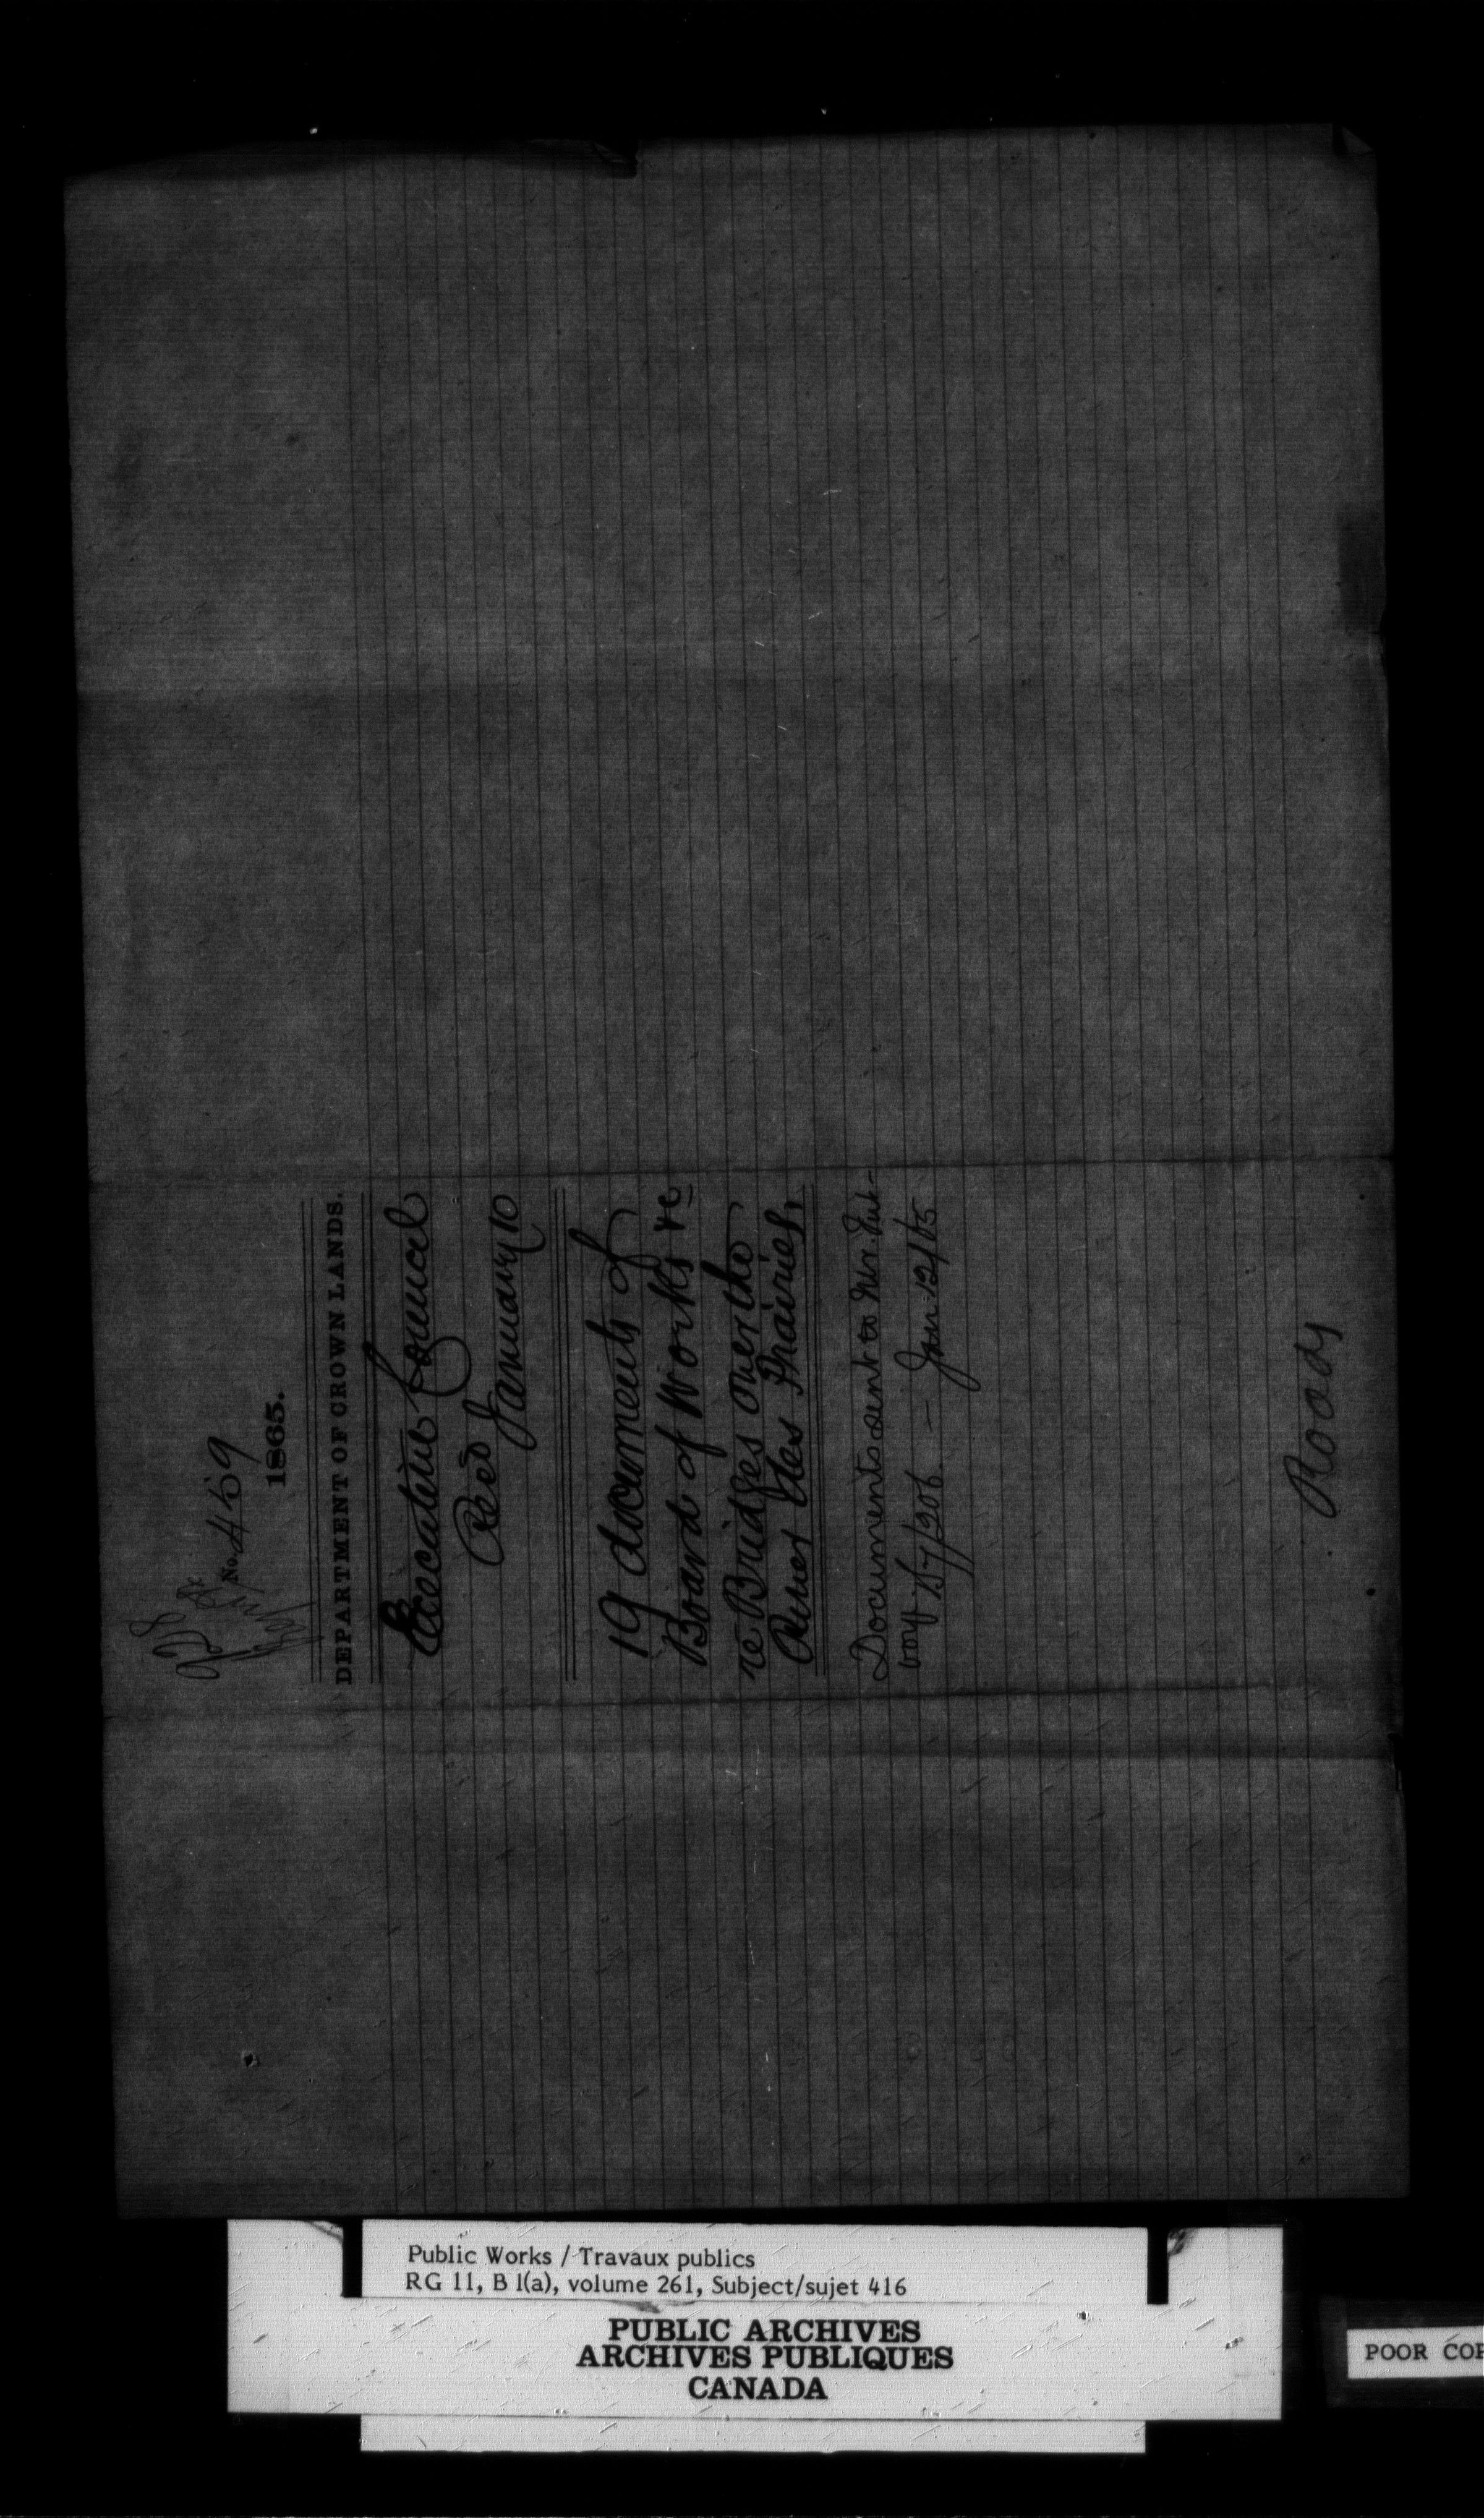 No. 459
1865.
DEPARTMENT OF CROWN LANDS.
Executive Council
Recd January 10
19 documents of
Board of Works re
re Bridges over the
River des Prairies,
Documents sent to Mr.
Jan 12/65
Roads
Public Works / Travaux publics
RG 11, B 1(a), volume 261, Subject/sujet 416
PUBLIC ARCHIVES
ARCHIVES PUBLIQUES
CANADA
POOR COP